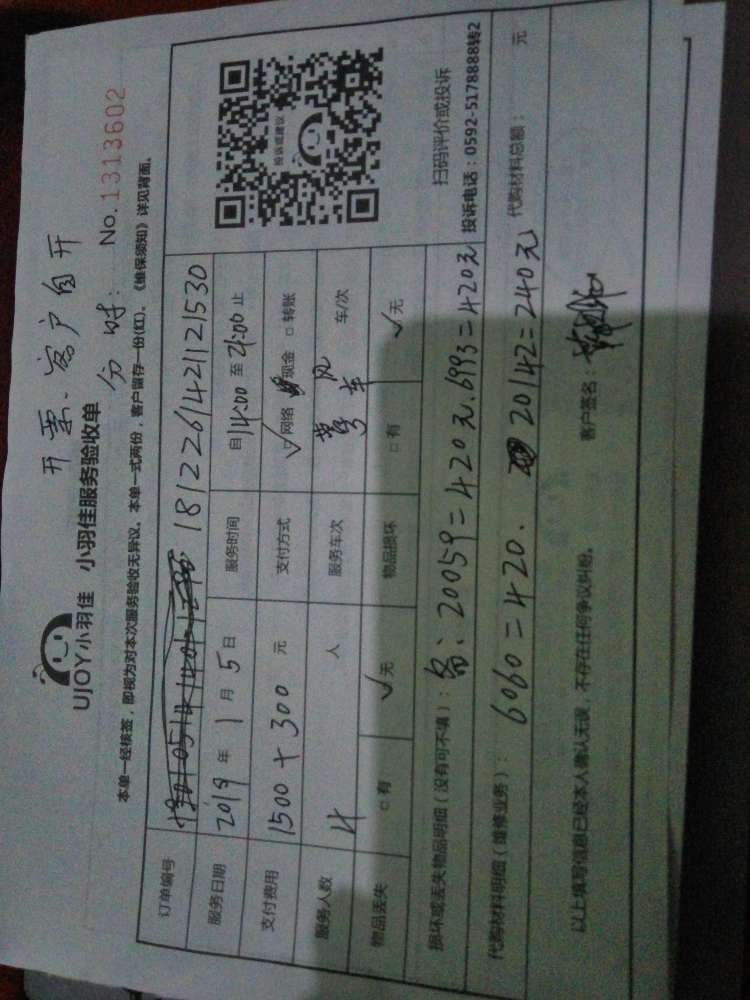 开票:客户自开
分时:
UJOY小羽佳 小羽佳服务验收单 No.1313602
本单一经核签,即视为对本次服务验收无异议。本单一式两份,客户留存一份(红)。《维保须知》详见背面。
订单编号 181226142112 1530
服务日期 2019 年 1 月 5 日 服务时间 自 14:00 至 21:00 止
支付费用 1500+300 元 支付方式 ☑网络 现金 □转账
服务人数 4 人 服务车次 车/次
物品丢失 □有 ☑无 物品损坏 □有 ☑无
投诉或建议
扫码评价或投诉
投诉电话:0592-5178888转2
损坏或丢失物品明细(没有可不填): 20059=420元.6993=420元
代购材料明细(维修业务): 6060=420. 20142=240元 代购材料总额: 元
以上填写信息已经本人确认无误,不存在任何争议纠纷。 客户签名: